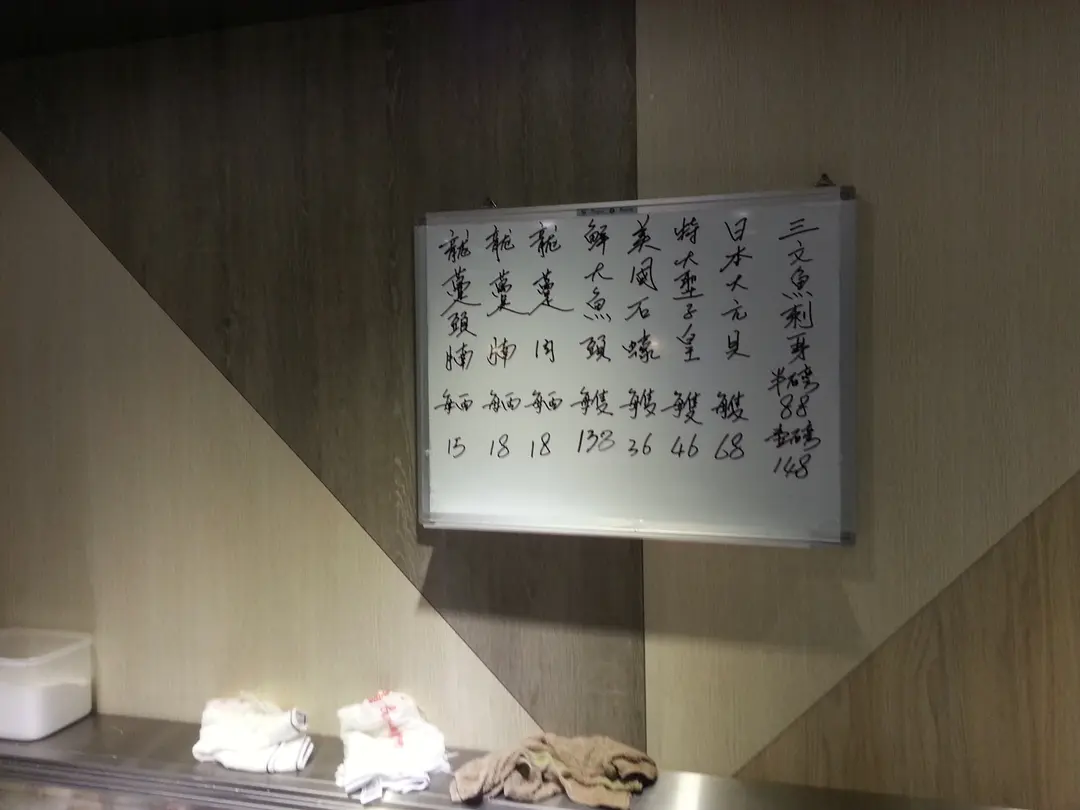 三文魚刺身半磅88壹磅148
日本大元貝每隻68
特大聖子皇每隻46
美國石蠔每隻36
鮮大魚頭每隻138
龍躉肉每両18
龍躉腩每両18
龍躉頭腩每両15